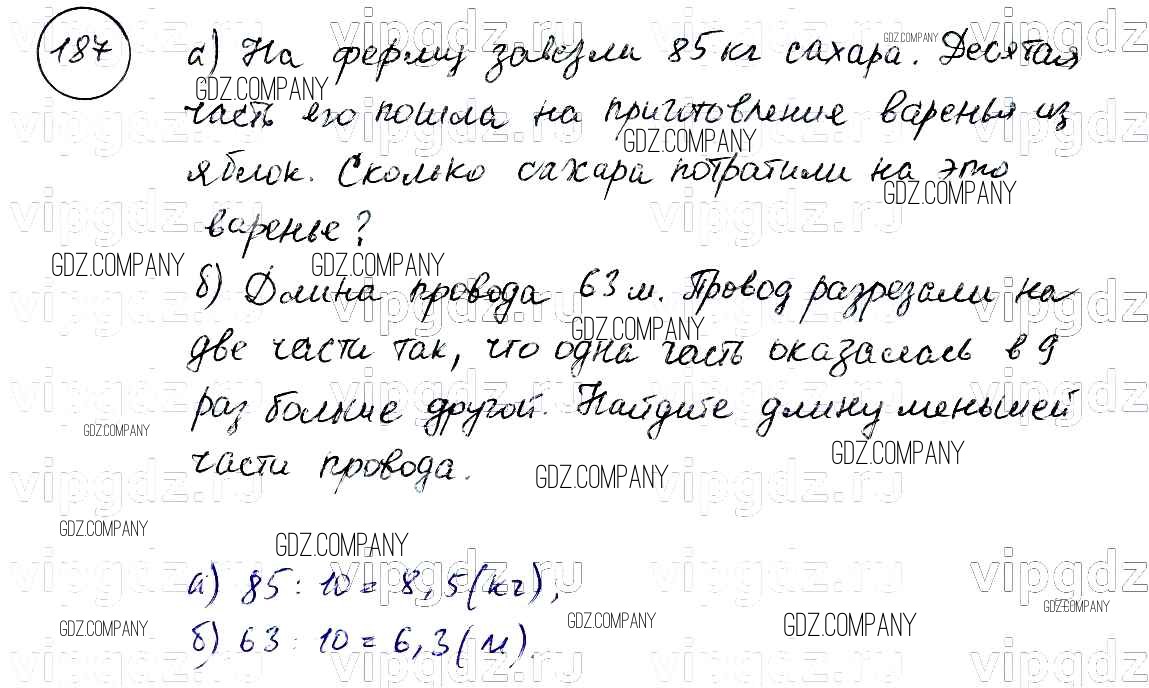 187
а) На ферму завезли 85 кг сахара. Десятая
часть его пошла на приготовление варенья из
яблок. Сколько сахара потратили на это
варенье?
б) Длина провода 63 м. Провод разрезали на
две части так, что одна часть оказалась в 9
раз больше другой. Найдите длину меньшей
части провода.
а) 85 : 10 = 8,5 (кг);
б) 63 : 10 = 6,3 (м).
vipgdz.ru
GDZ.COMPANY